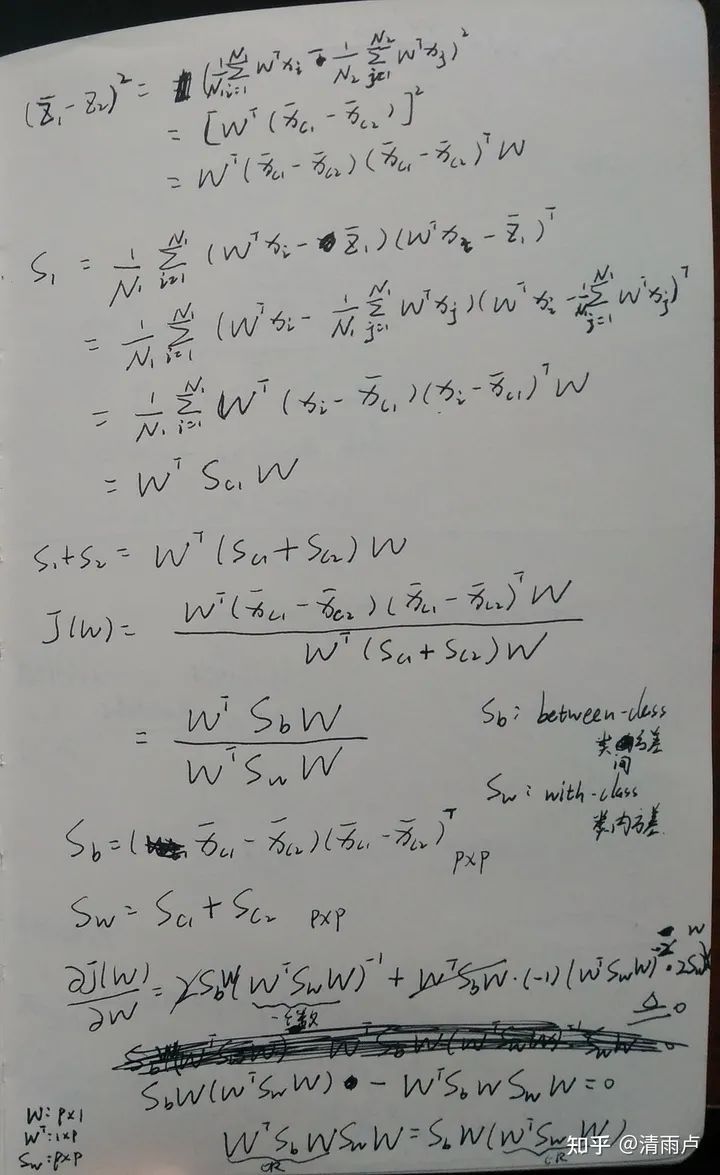 (z̄₁ - z₂)² = (1/N₁ ∑ᵢ₌₁^N₁ Wᵀxᵢ - 1/N₂ ∑ⱼ₌₁^N₂ Wᵀxⱼ)²
= [Wᵀ(x̄c₁ - x̄c₂)]²
= Wᵀ(x̄c₁ - x̄c₂)(x̄c₁ - x̄c₂)ᵀW
S₁ = 1/N₁ ∑ᵢ₌₁^N₁ (Wᵀxᵢ - z̄₁)(Wᵀxᵢ - z̄₁)ᵀ
= 1/N₁ ∑ᵢ₌₁^N₁ (Wᵀxᵢ - 1/N₁ ∑ⱼ₌₁^N₁ Wᵀxⱼ)(Wᵀxᵢ - 1/N₁ ∑ⱼ₌₁^N₁ Wᵀxⱼ)ᵀ
= 1/N₁ ∑ᵢ₌₁^N₁ Wᵀ(xᵢ - x̄c₁)(xᵢ - x̄c₁)ᵀW
= WᵀSc₁W
S₁+S₂ = Wᵀ(Sc₁+Sc₂)W
J(W) = Wᵀ(x̄c₁ - x̄c₂)(x̄c₁ - x̄c₂)ᵀW / Wᵀ(Sc₁+Sc₂)W
= WᵀSbW / WᵀSwW
Sb: between-class
类间方差
Sw: with-class
类内方差
Sb = (x̄c₁ - x̄c₂)(x̄c₁ - x̄c₂)ᵀ p×p
Sw = Sc₁ + Sc₂ p×p
∂J(W)/∂W = 2SbW(WᵀSwW)⁻¹ + WᵀSbW·(-1)(WᵀSwW)⁻²·2SwW
≜ 0
SbW(WᵀSwW) - WᵀSbWSwW = 0
W: p×1
Wᵀ: 1×p
Sw: p×p
WᵀSbWSwW = SbW(WᵀSwW)
∈R ∈R
知乎 @清雨卢